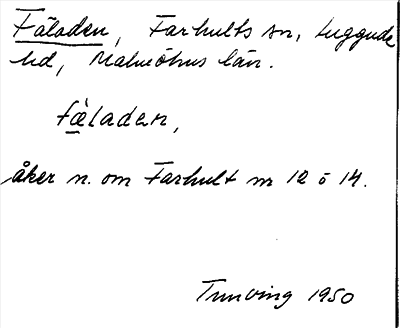 Fäladen, Farhults sn, Luggude
hd, Malmöhus län.
fæ̀laden,
åker n. om Farhult nr 12 o 14.
Tunving 1950